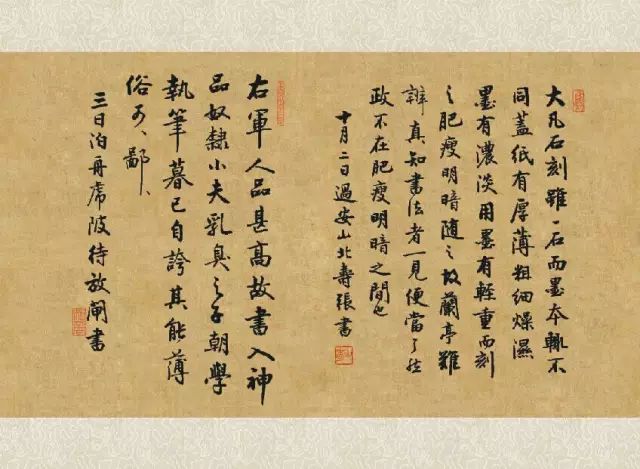 大凡石刻雖一石而墨本輒不
同蓋紙有厚薄粗細燥濕
墨有濃淡用墨有輕重而刻
之肥瘦明暗隨之故蘭亭難
辨真知書法者一見便當了然
政不在肥瘦明暗之間也
十月二日過安山北壽張書
右軍人品甚高故書入神
品奴隸小夫乳臭之子朝學
執筆暮已自誇其能薄
俗可、鄙、
三日泊舟虎陂待放閘書